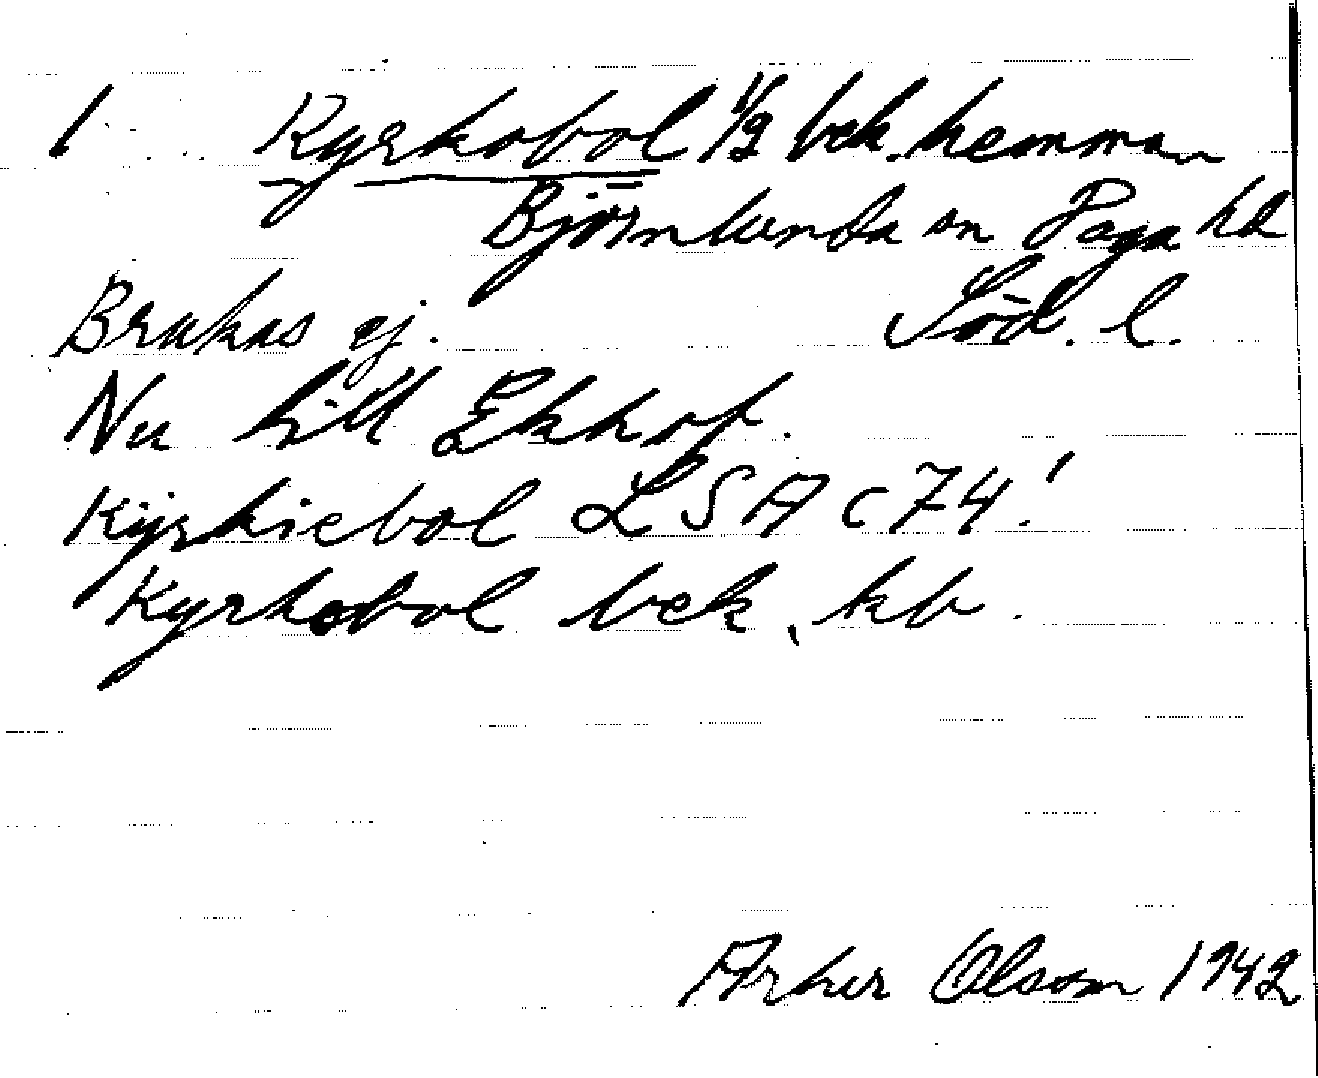 1 Kyrkobol 1/2 bek. hemman
Björnlunda sn Daga hd
Brukas ej. Söd. l.
Nu till Ekhof.
Kyrkiebol LSA C74!
Kyrkobol bek. kb.
Arher Olson 1942